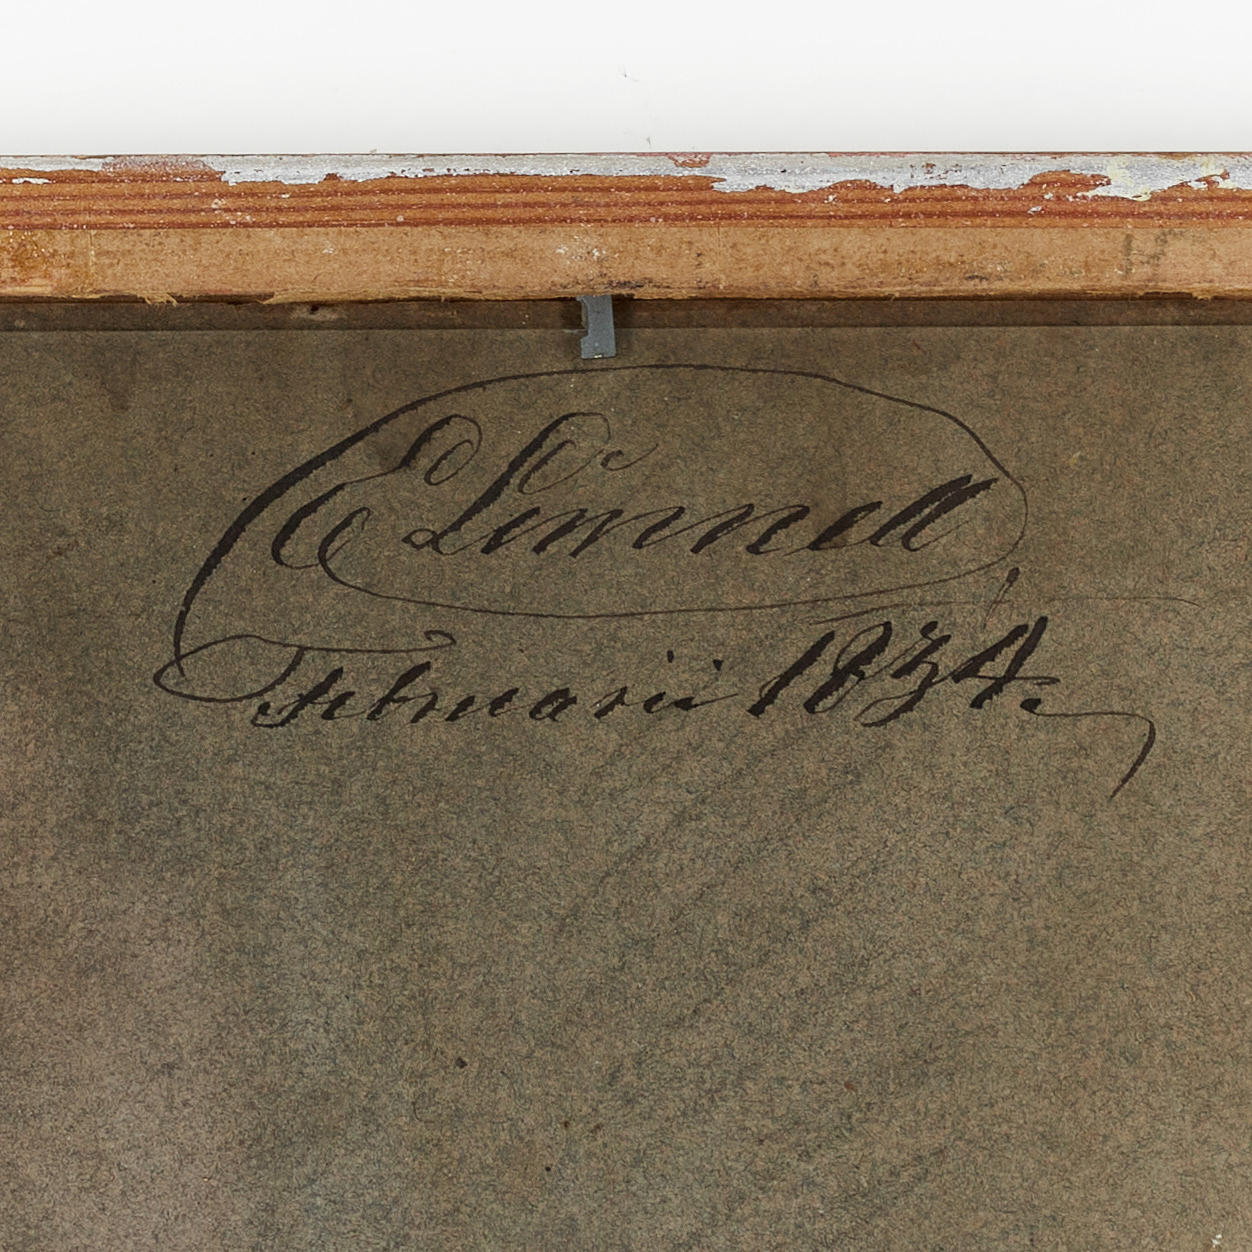 E Limnell
Februarii 1834.